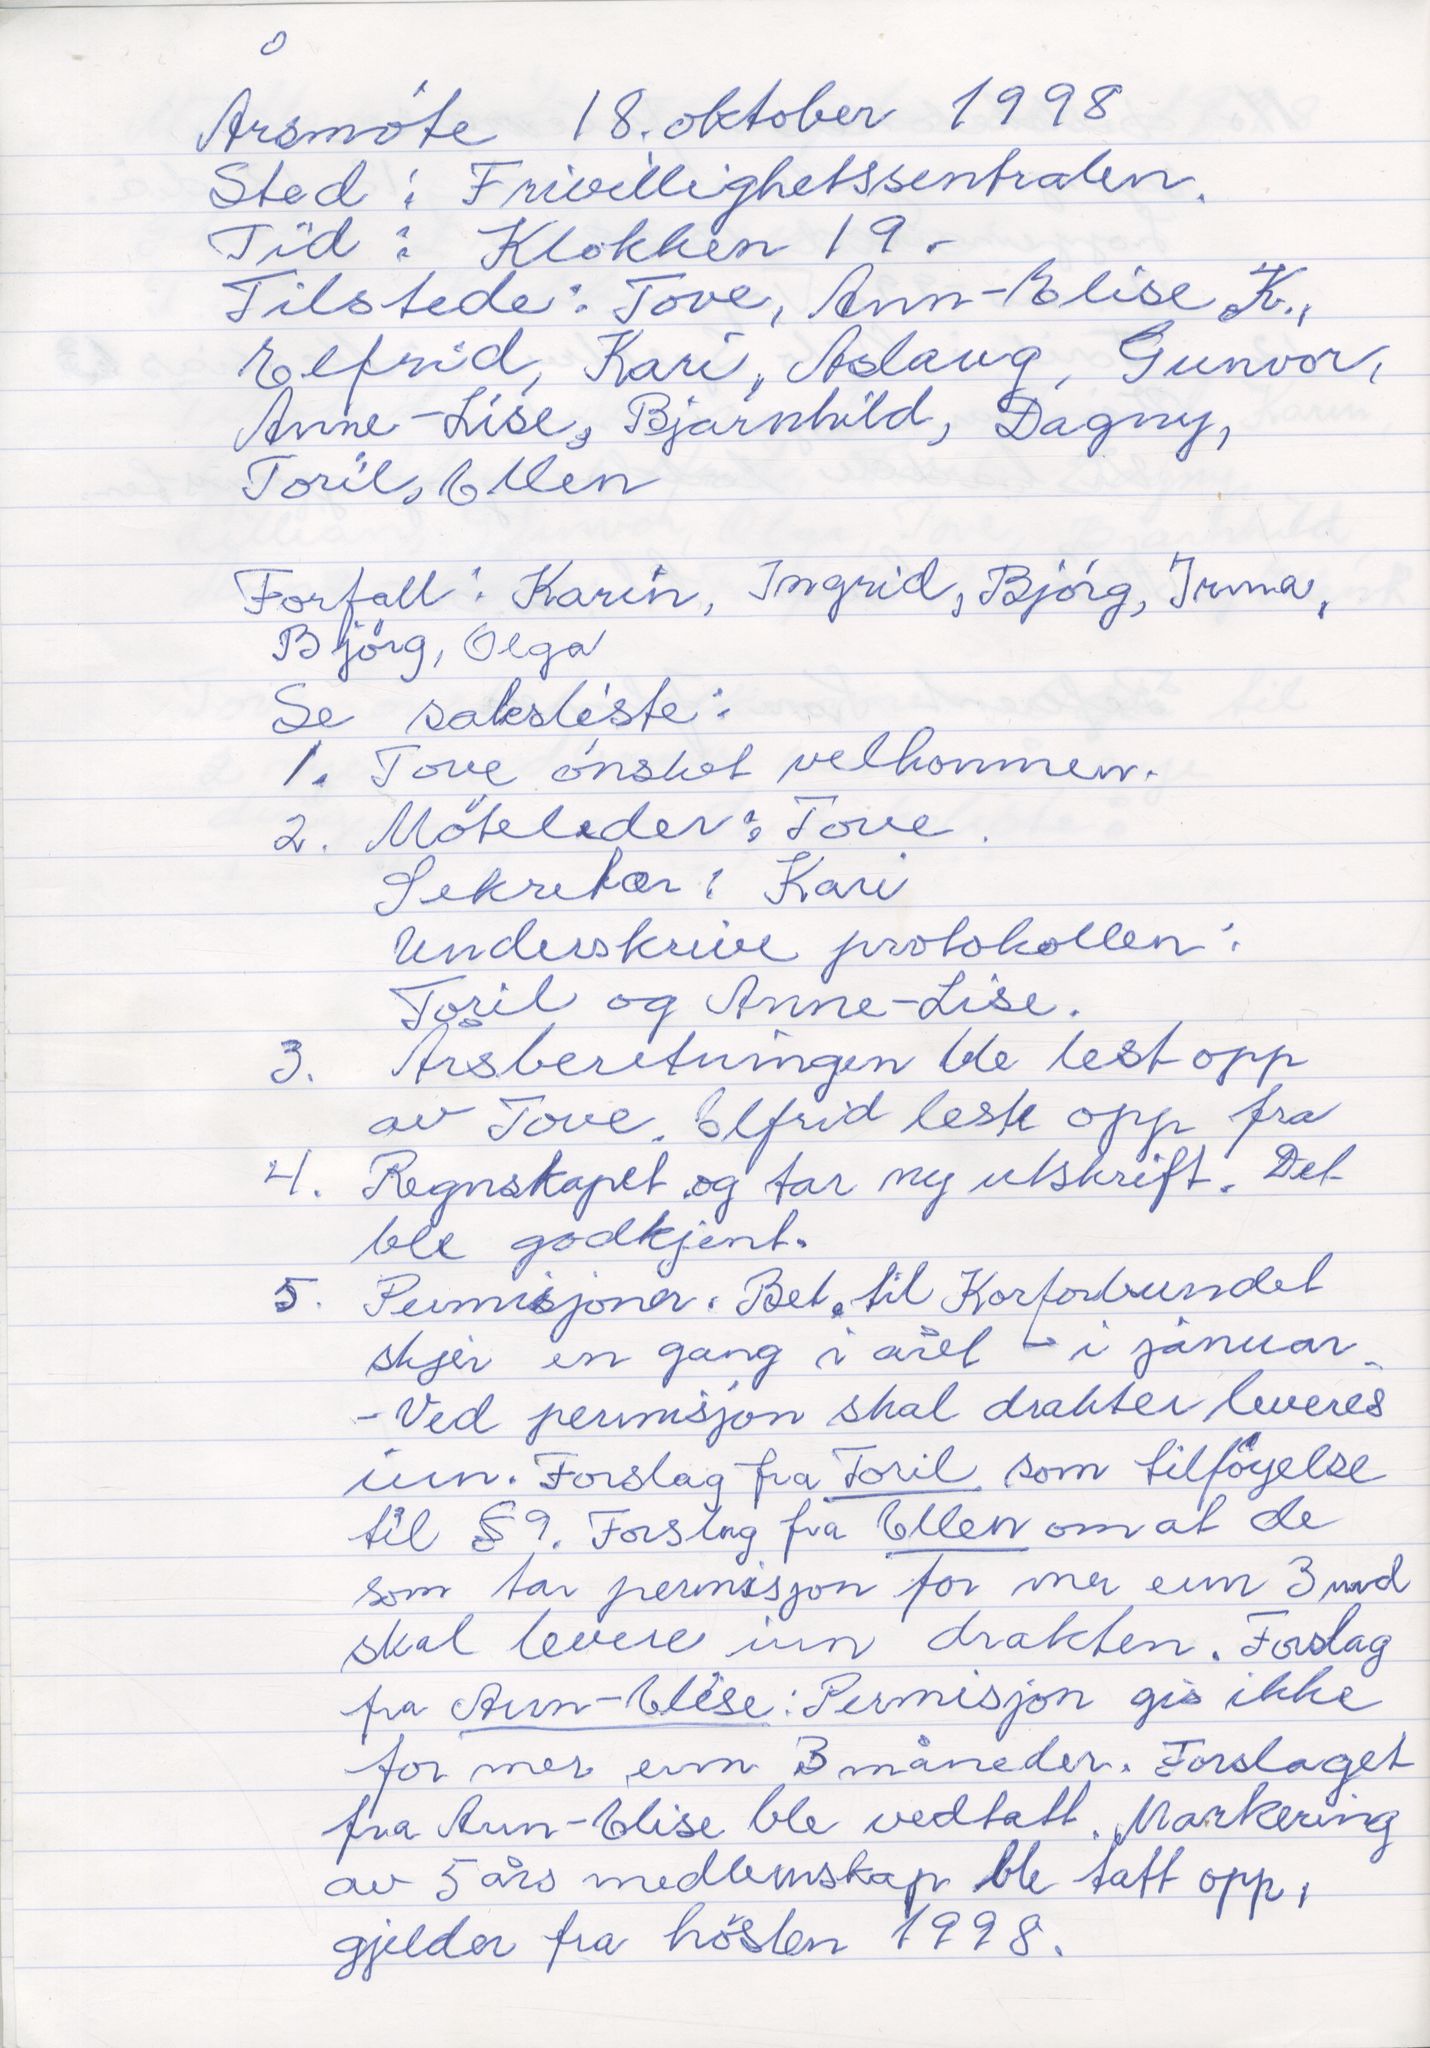 Årsmöte 18. oktober 1998
Sted : Frivillighetssentralen.
Tid : Klokken 19.
Tilstede : Tove, Ann-Elise K.,
Elfrid, Kari, Aslaug, Gunvor,
Anne-Lise, Bjarnhild, Dagny,
Toril, Ellen
Forfall : Karin, Ingrid, Bjórg, Irma,
Bjórg, Olga
Se saksliste :
1. Tove ónsket velkommen.
2. Möteleder : Tove.
Sekretær : Kari
Underskrive protokollen :
Toril og Anne-Lise.
3. Årsberetningen ble lest opp
av Tove. Elfrid leste opp fra
4. Regnskapet og tar ny utskrift. Det
ble godkjent.
5. Permisjoner. Bet. til Korforbundet
skjer en gang i året - i januar.
- Ved permisjon skal drakter leveres
inn. Forslag fra Toril som tilföyelse
til § 9. Forslag fra Ellen om at de
som tar permisjon for mer enn 3 mnd
skal levere inn drakten. Forslag
fra Ann-Elise : Permisjon gis ikke
for mer enn 3 måneder. Forslaget
fra Ann-Elise ble vedtatt. Markering
av 5 års medlemskap ble tatt opp,
gjelder fra hösten 1998.